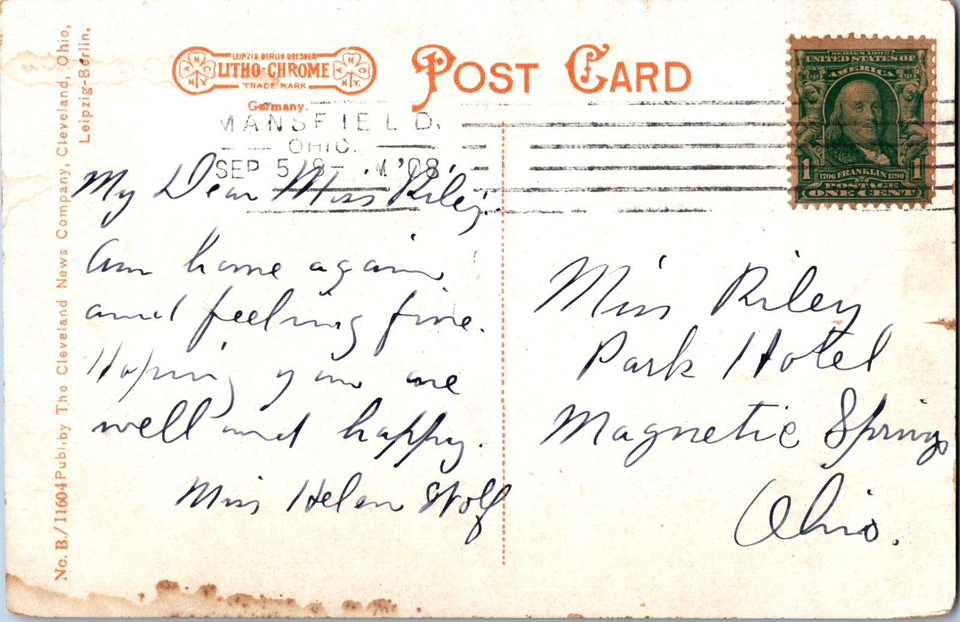 No. B./11604 Publ. by The Cleveland News Company, Cleveland, Ohio,
Leipzig-Berlin.
LEIPZIG BERLIN DRESDEN
LITHO-CHROME
TRADE MARK
Germany.
POST CARD
MANSFIELD.
OHIO.
SEP 5 '08
SERIES 1902
UNITED STATES OF
AMERICA
1 1
1706 FRANKLIN 1790
POSTAGE
ONE CENT
My Dear Miss Riley.
Am home again
and feeling fine.
Hoping you are
well and happy.
Miss Helen Wolf
Miss Riley
Park Hotel
Magnetic Springs
Ohio.